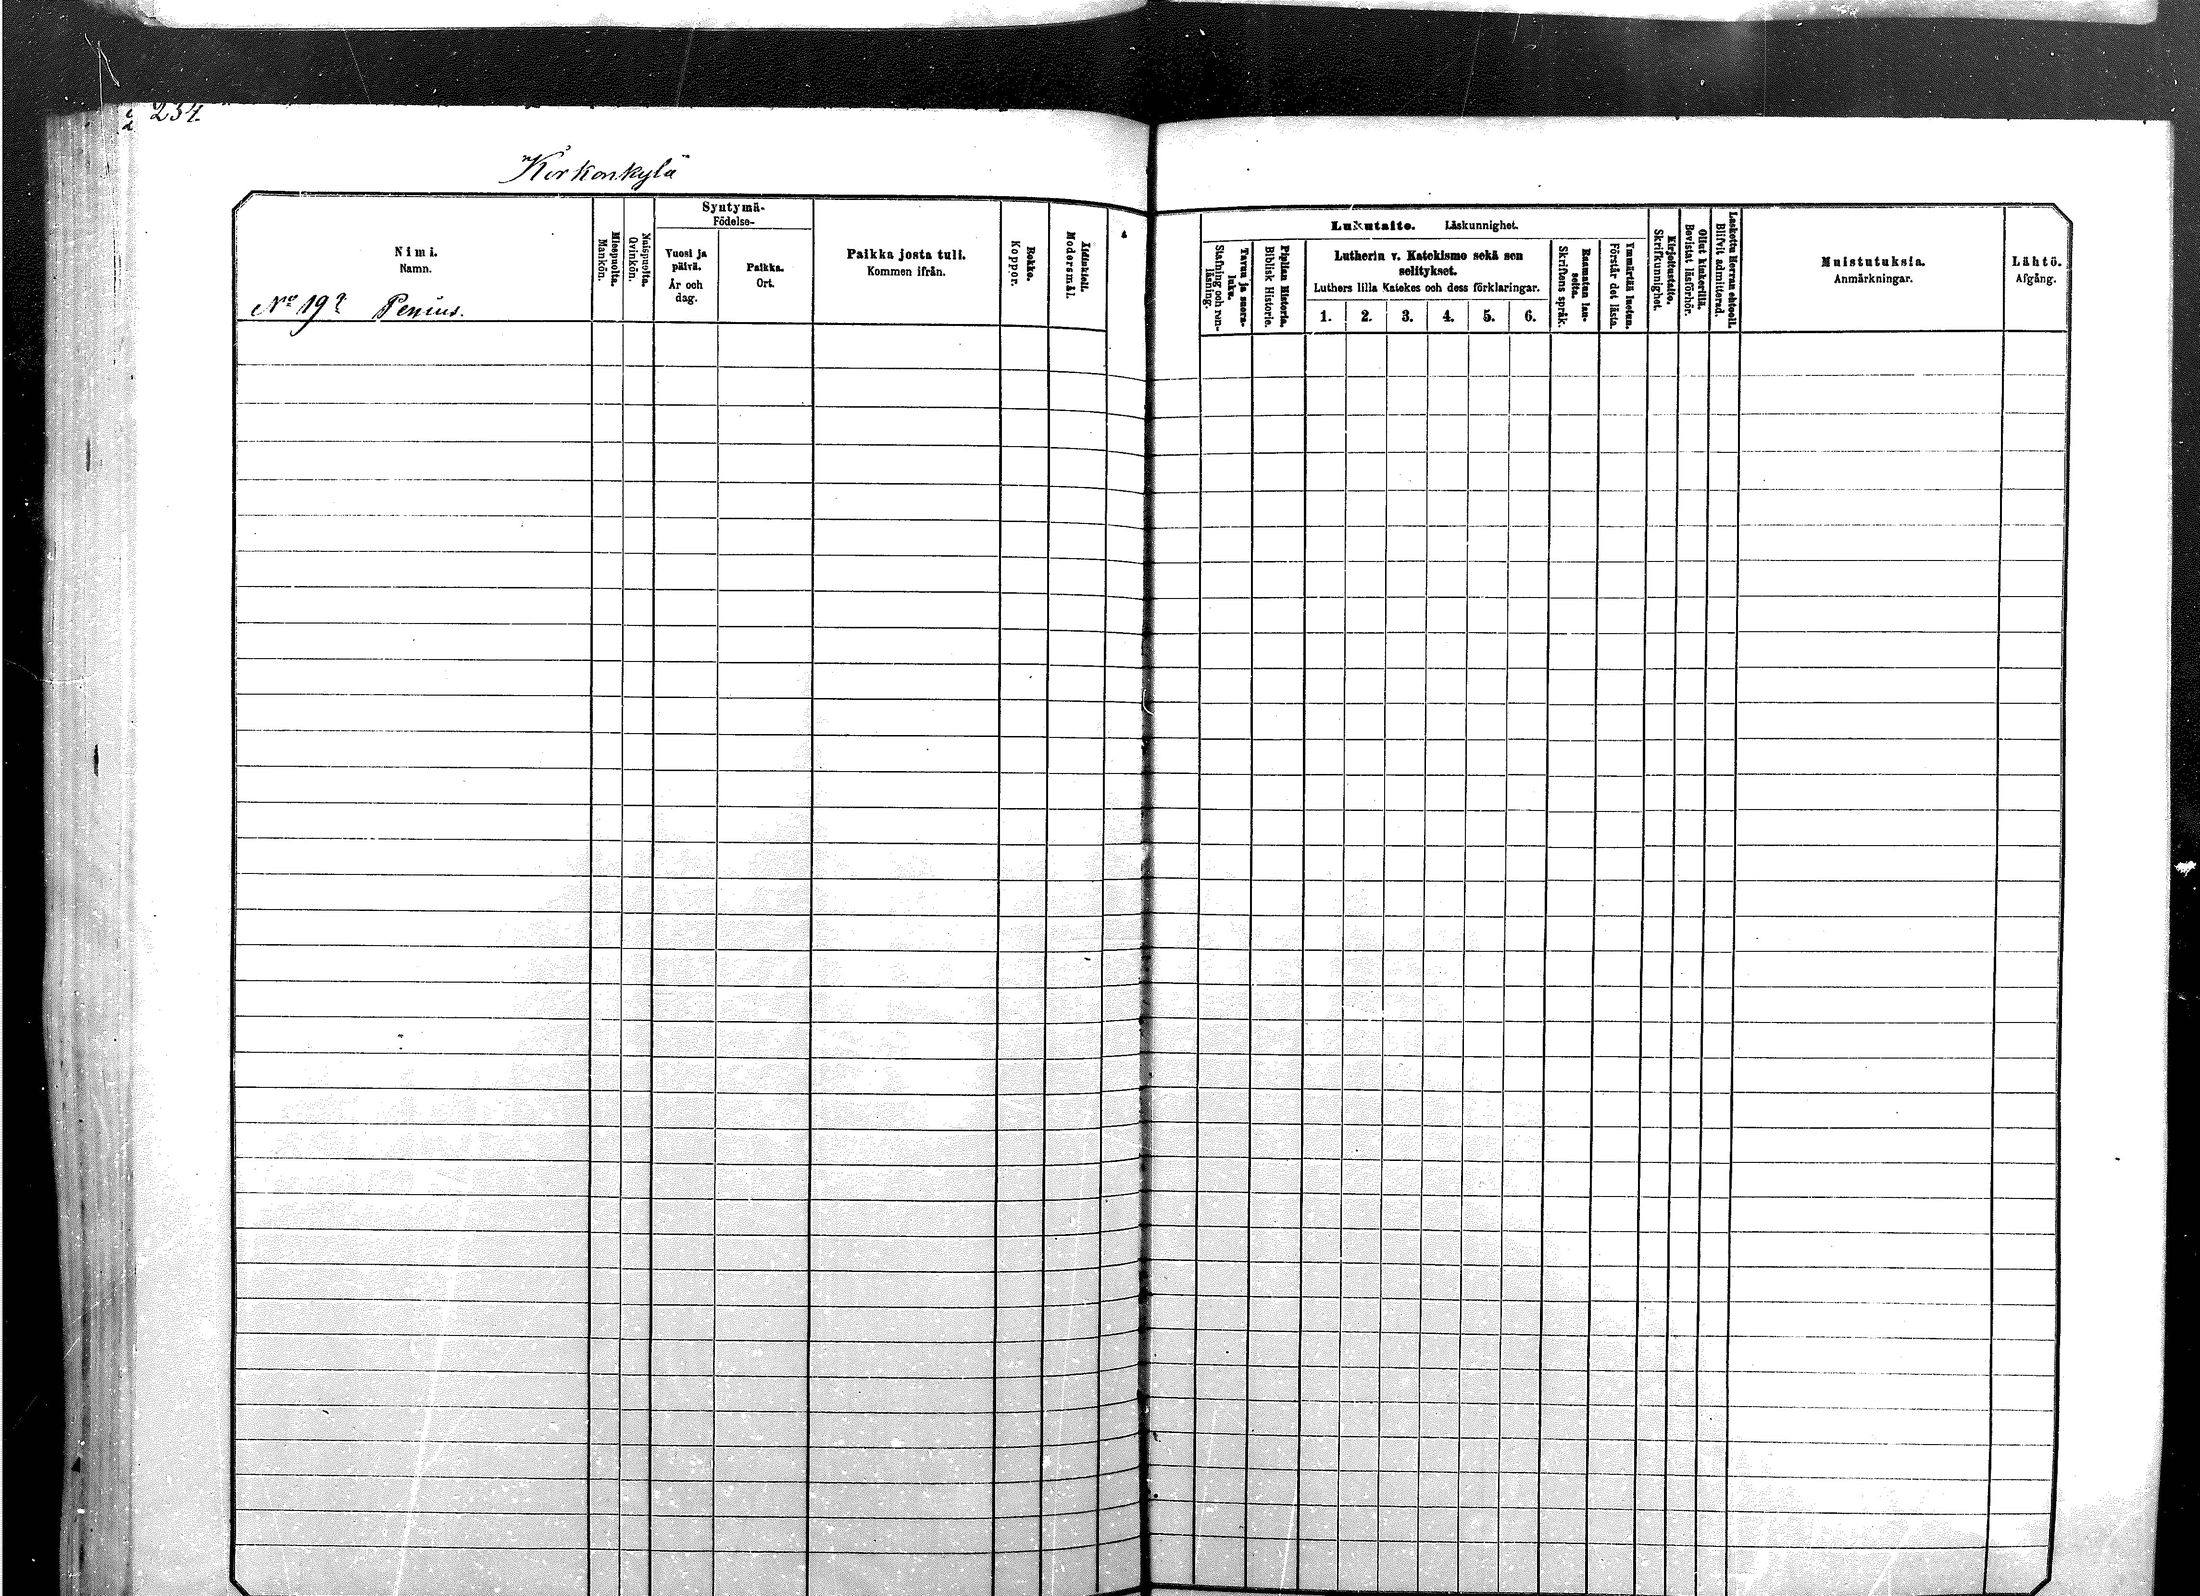 234.
Kirkonkylä
Nimi.
Namn.
Miespuolta.
Mankön.
Naispuolta.
Qvinkön.
Syntymä-
Födelse-
Vuosi ja
päivä.
År och
dag.
Paikka.
Ort.
Paikka josta tuli.
Kommen ifrån.
Rokko.
Koppor.
Äidinkieli.
Modersmål.
No 19
Lukutaito. Läskunnighet.
Tavuu ja suora-
luku.
Stafning och ren-
läsning.
Piplian Historia.
Biblisk Historie.
Lutherin v. Katekismo sekä sen
selitykset.
Luthers lilla Katekes och dess förklaringar.
1. 2. 3. 4. 5. 6.
Raamatun lau-
seita.
Skriftens språk.
Ymmärtää luetun.
Förstår det lästa.
Kirjoitustaito.
Skrifkunnighet.
Ollut kinkerillä.
Bevistat läsförhör.
Laskettu Herran ehtooll.
Blifvit admitterad.
Muistutuksia.
Anmärkningar.
Lähtö.
Afgång.